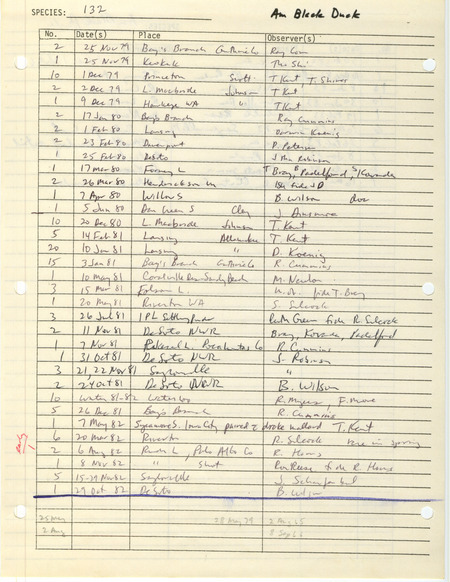 SPECIES: 132 Am Black Duck
No. Date(s) Place Observer(s)
2 25 Nov 79 Bay's Branch Guthrie Co Ray Cum
1 25 Nov 79 Keokuk
10 1 Dec 79 Princeton Scott T Kent T. Shires
2 2 Dec 79 L. Macbride Johnson T Kent
1 9 Dec 79 Hawkeye WA " T Kent
2 17 Jan 80 Bay's Branch Ray Cummins
2 1 Feb 80 Lansing Darwin Koenig
2 23 Feb 80 Davenport P. Petersen
1 25 Feb 80 DeSoto Robinson
1 17 Mar 80 Forney L T Bray, B Padelford, Kovanda
2 26 Mar 80 Hendrickson M
1 7 Apr 80 Willow S B. Wilson doc
1 5 Jun 80 Dan Green S Clay J
10 20 Dec 80 L. Macbride Johnson T. Kent
5 14 Feb 81 Lansing Allamakee T Kent
20 10 Jan 81 Lansing " D. Koenig
15 3 Jan 81 Bay's Branch Guthrie Co R Cummins
1 10 May 81 Coralville Res Sandy Beach M. Newlon
3 15 Mar 81 Folsom L. fide T. Bray
1 20 May 81 Riverton WA S. Silcock
3 26 Jul 81 IPL Settling Ponds Ruth Green fide R. Silcock
2 11 Nov 81 DeSoto NWR Bray, Kovanda, Padelford
1 7 Nov 81 Pocahontas Co R. Cummins
1 31 Oct 81 DeSoto NWR J. Robinson
3 21, 22 Nov 81 Saylorville "
2 24 Oct 81 DeSoto NWR B. Wilson
10 Winter 81-82 Waterloo R. Myers, F. Moore
5 26 Dec 81 Bay's Branch R. Cummins
1 7 May 82 Sycamore S. Iowa City paired c drake mallard T. Kent
6 20 Mar 82 Riverton R. Silcock rare in spring
2 6 Aug 82 Rush L, Palo Alto Co R. Harms
1 8 Nov 82 " shot Ron Reese fide R. Harms
5 15-19 Nov 82 Saylorville J. Schaufenbuel
1 29 Oct 82 DeSoto B. Wilson
25 May 28 May 79 2 Aug 65
2 Aug 8 Sep 62